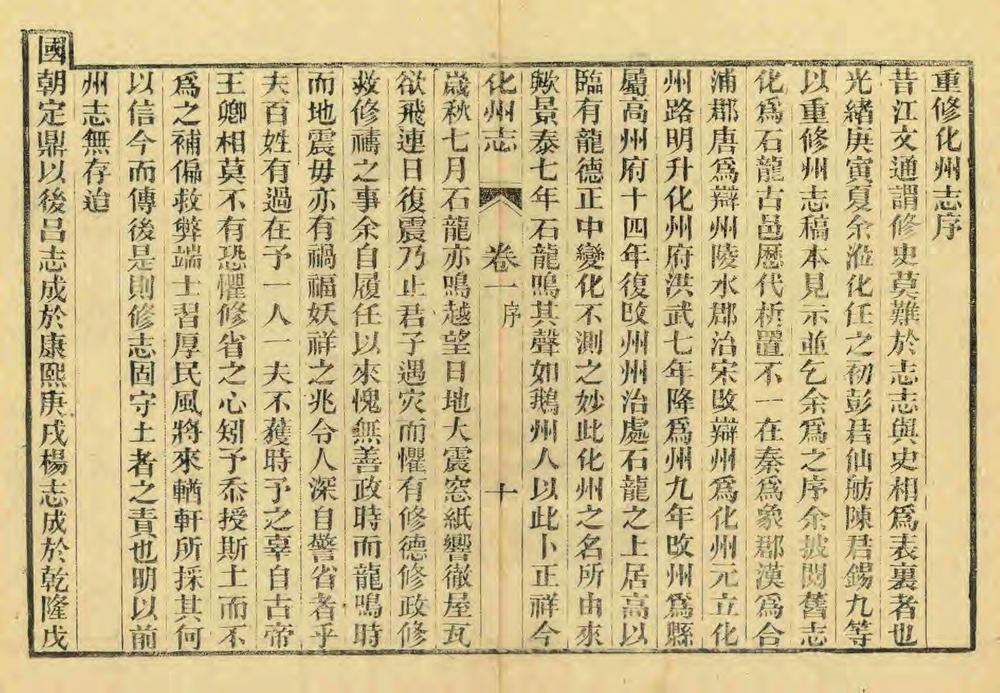 重修化州志序
昔江文通謂修史莫難於志志與史相爲表裏者也
光緒庚寅夏余涖化任之初彭君仙舫陳君錫九等
以重修州志稿本見示並乞余爲之序余披閱舊志
化爲石龍古邑歷代析置不一在秦爲象郡漢爲合
浦郡唐爲辯州陵水郡治宋改辯州爲化州元立化
州路明升化州府洪武七年降爲州九年改州爲縣
屬高州府十四年復改州州治處石龍之上居高以
臨有龍德正中變化不測之妙此化州之名所由來
歟景泰七年石龍鳴其聲如鵝州人以此卜正祥今
化州志 卷一 序 十
歲秋七月石龍亦鳴越望日地大震窓紙響徹屋瓦
欲飛連日復震乃止君子遇灾而懼有修德修政修
救修禱之事余自履任以來愧無善政時而龍鳴時
而地震毋亦有禍福妖祥之兆令人深自警省者乎
夫百姓有過在予一人一夫不獲時予之辜自古帝
王卿相莫不有恐懼修省之心矧予忝授斯土而不
爲之補偏救弊端士習厚民風將來輶軒所採其何
以信今而傳後是則修志固守土者之責也明以前
州志無存迨
國朝定鼎以後呂志成於康熙庚戌楊志成於乾隆戊